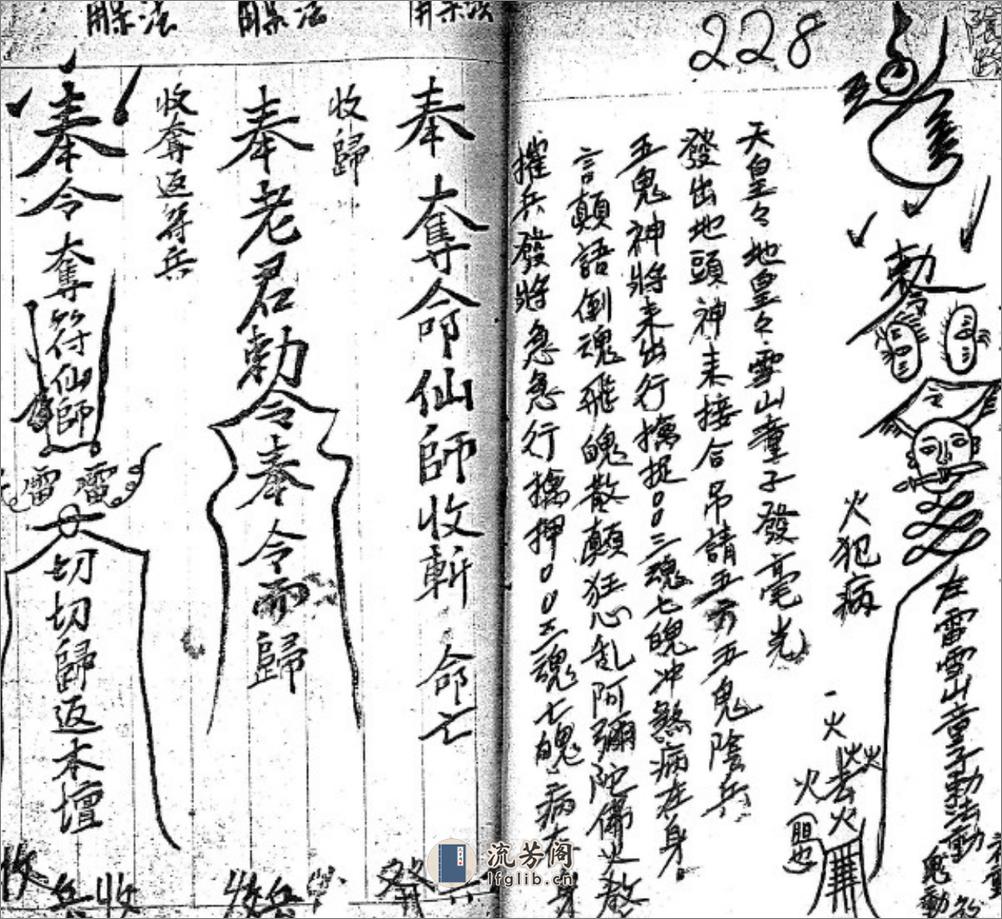 陰路
228
勅令
左雷雪山童子動法動
鬼動
火犯病
一火
火
天皇々地皇々雪山童子發毫光
發出地頭神來接合吊請五方五鬼陰兵
五鬼神將來出行擒捉○○三魂七魄冲煞病在身。
言顛語倒魂飛魄散顛狂心乱阿彌陀佛火敕
摧兵發將急急行擒押○○三魂七魄病在身
開杀法
開杀法
開杀法
奉奪命仙師收斬命亡
收歸
奉老君勅令奉令而歸
收奪返符兵
奉令奪符仙師
雷雷
切切歸返本壇
發兵
收兵
收兵收
流芳阁
lfglib.cn